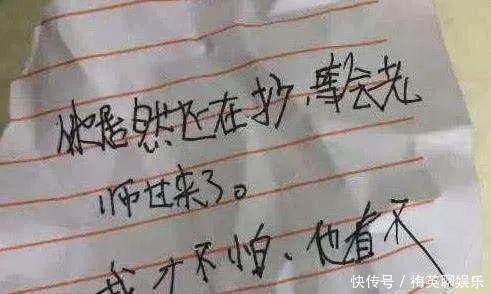 你居然还在抄,等会老
师过来了。
我才不怕、他看不
快传号/梅英聊娱乐